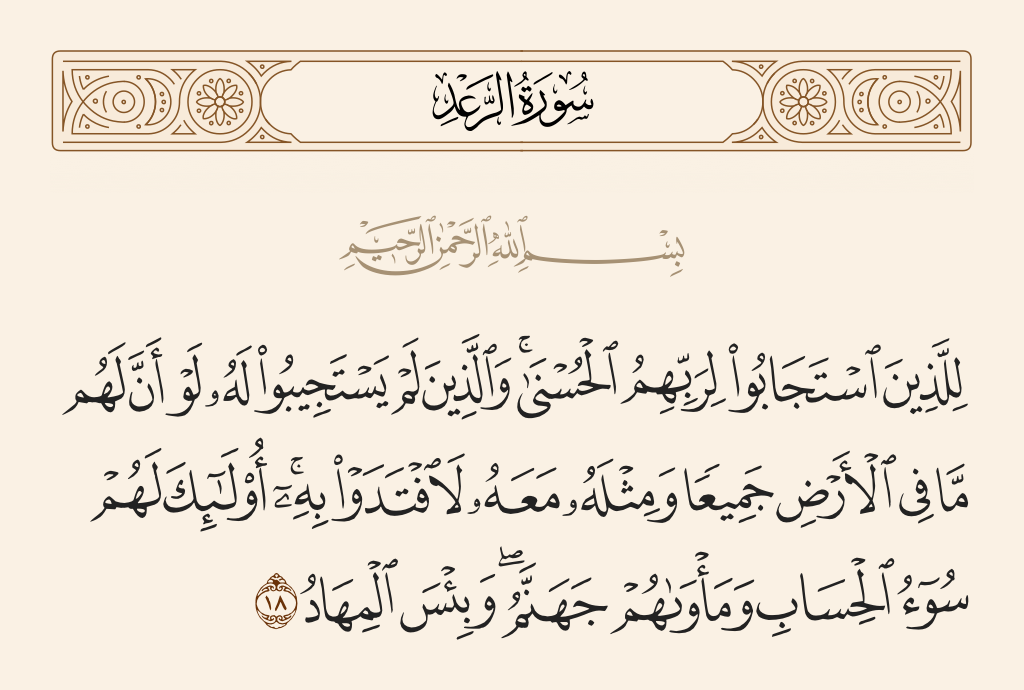 سُورَةُ الرَّعْدِ
بِسْمِ ٱللَّهِ ٱلرَّحْمَٰنِ ٱلرَّحِيمِ
لِلَّذِينَ ٱسْتَجَابُوا۟ لِرَبِّهِمُ ٱلْحُسْنَىٰ ۚ وَٱلَّذِينَ لَمْ يَسْتَجِيبُوا۟ لَهُۥ لَوْ أَنَّ لَهُم
مَّا فِى ٱلْأَرْضِ جَمِيعًا وَمِثْلَهُۥ مَعَهُۥ لَٱفْتَدَوْا۟ بِهِۦٓ ۚ أُو۟لَـٰٓئِكَ لَهُمْ
سُوٓءُ ٱلْحِسَابِ وَمَأْوَىٰهُمْ جَهَنَّمُ ۖ وَبِئْسَ ٱلْمِهَادُ ١٨